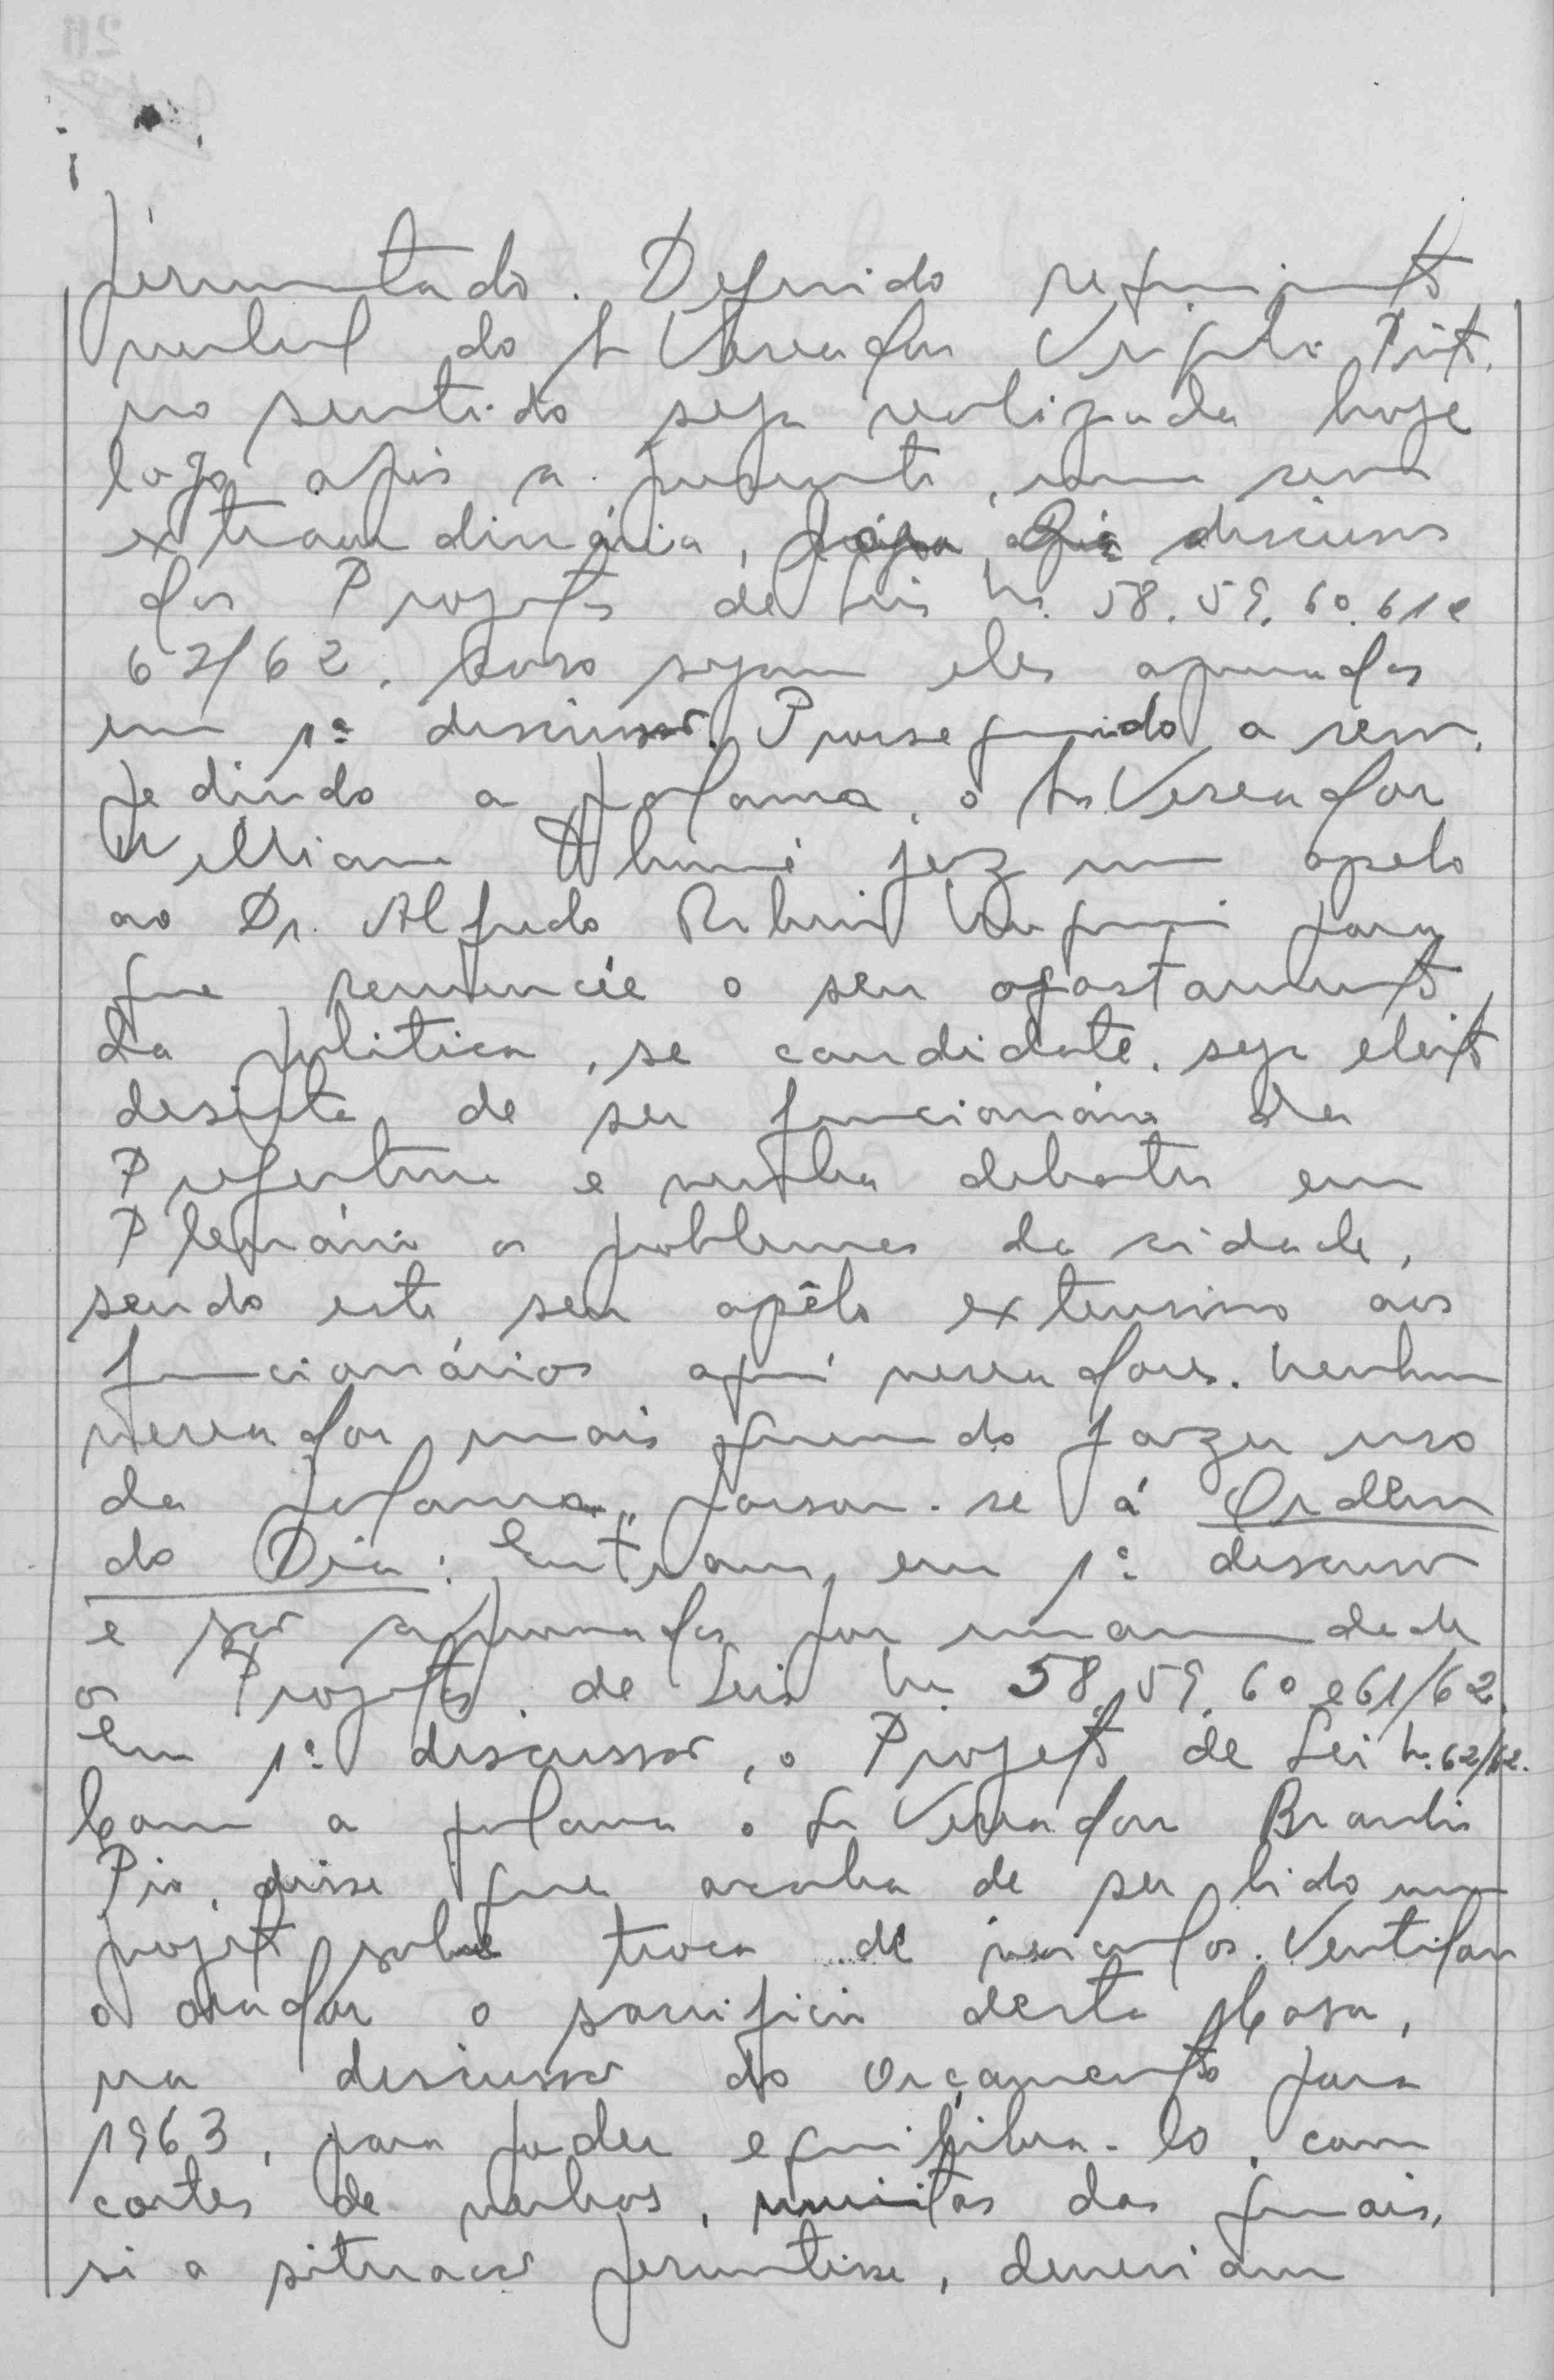 permutado. Deferido requerimento
verbal do Sr Vereador Virgilio Pinto
no sentido seja realizada hoje
logo após a presente, uma sessão
extraordinária, discussão
dos Projetos de Leis Nr. 58. 59. 60. 61 e
62/62. Caso sejam eles aprovados
em 1ª discussão. Prosseguindo a sessão,
pedindo a palavra, o Sr Vereador
William fez um apelo
ao Dr. Alfredo para
que renuncie o seu afastamento
da politica, se candidate, seja eleito
desista de ser funcionário da
Prefeitura e venha debater em
Plenário os problemas da cidade,
sendo este seu apêlo extensivo aos
funcionários aqui vereadores. Nenhum
vereador mais querendo fazer uso
da palavra, passou-se á Ordem
do Dia: Entram em 1ª discussão
e são aprovados por unanimidade
os Projetos de Leis Nr. 58. 59. 60 e 61/62.
Em 1ª discussão, o Projeto de Lei Nr. 62/62.
Com a palavra o Sr Vereador Brandis
Pio, disse que acaba de ser lido um
projeto sobre troca de veiculos. Ventilou
o orador o sacrificio desta Casa,
na discussão do Orçamento para
1963, para poder equilibra-lo, com
cortes de verbas, muitas das quais,
si a situacão permitisse, deveriam